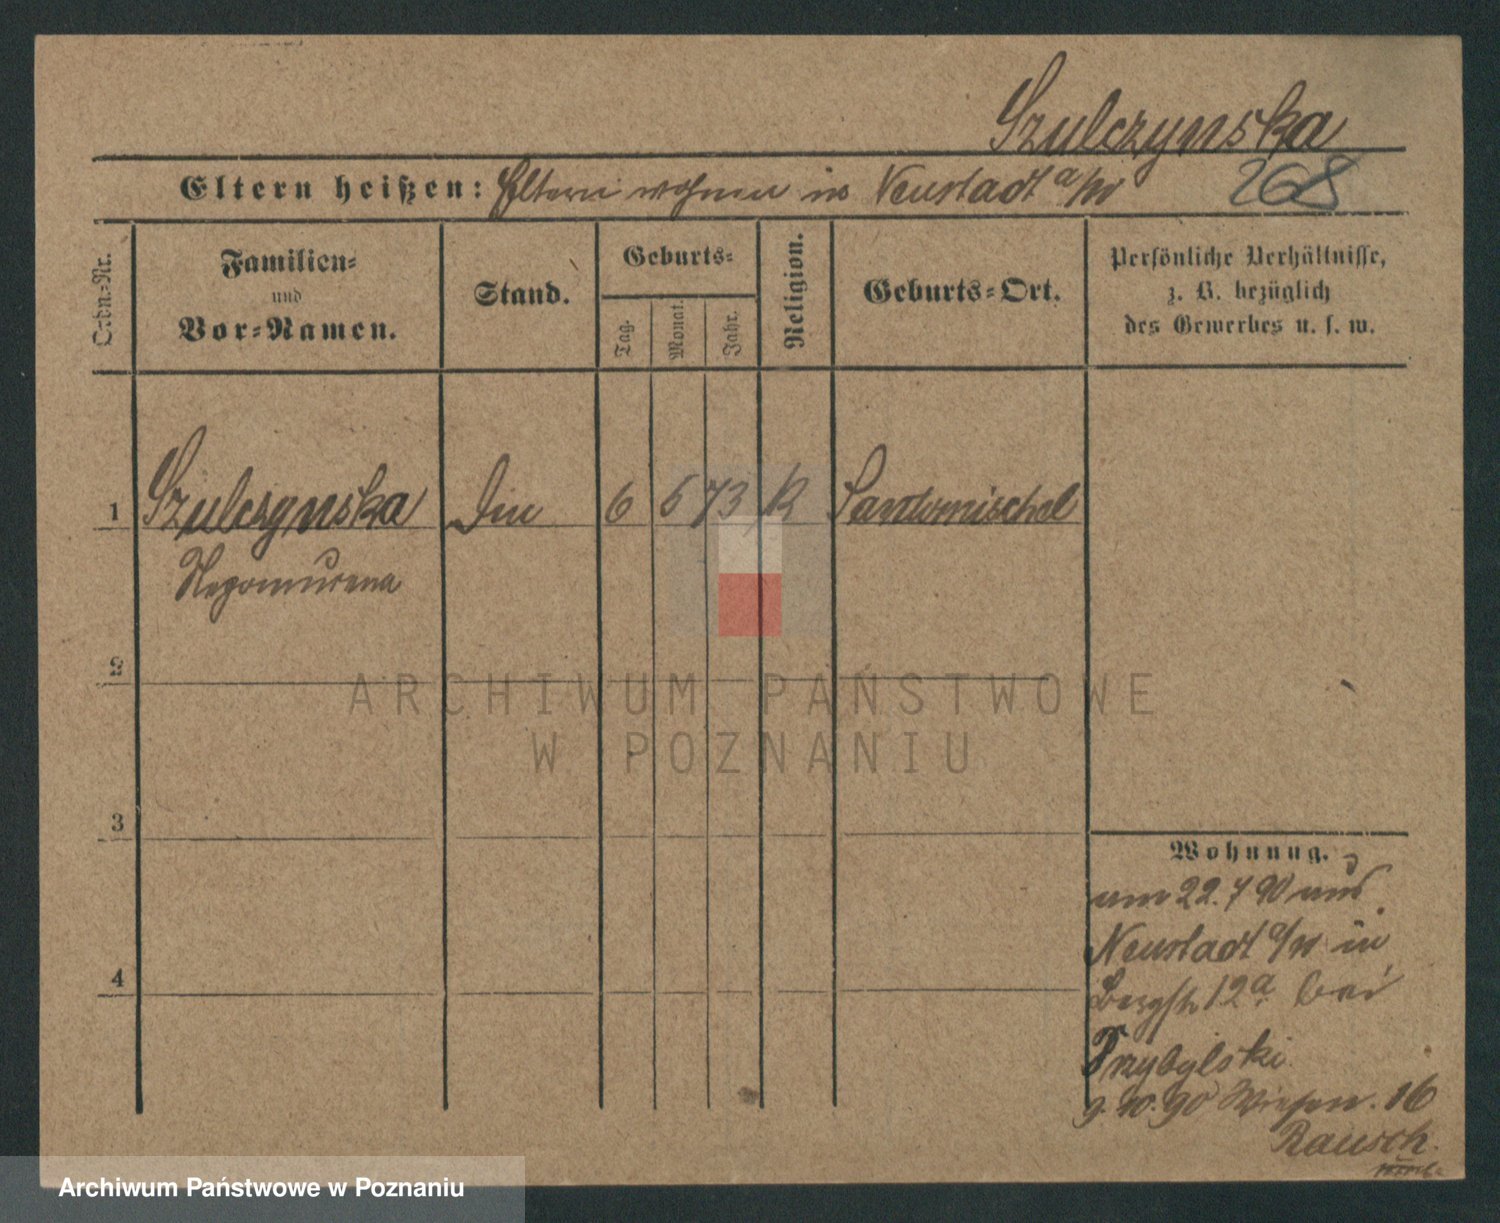 Szulczynska
Eltern heißen: Eltern wohnen in Neustadt a/W
268
Ordn.-Nr.
Familien- und Vor-Namen.
Stand.
Geburts-
Tag.
Monat.
Jahr.
Religion.
Geburts-Ort.
Persönliche Verhältnisse,
z. B. bezüglich
des Gewerbes u. s. w.
1 Szulczynska Din 6 5 73 K Santomischel
Nepomucena
2
3
4
Wohnung.
am 22.7 90 aus
Neustadt a/W in
Bergstr 12a bei
Przybylski
9.10.90 Wiesen. 16
Rausch.
ARCHIWUM PAŃSTWOWE
W POZNANIU
Archiwum Państwowe w Poznaniu